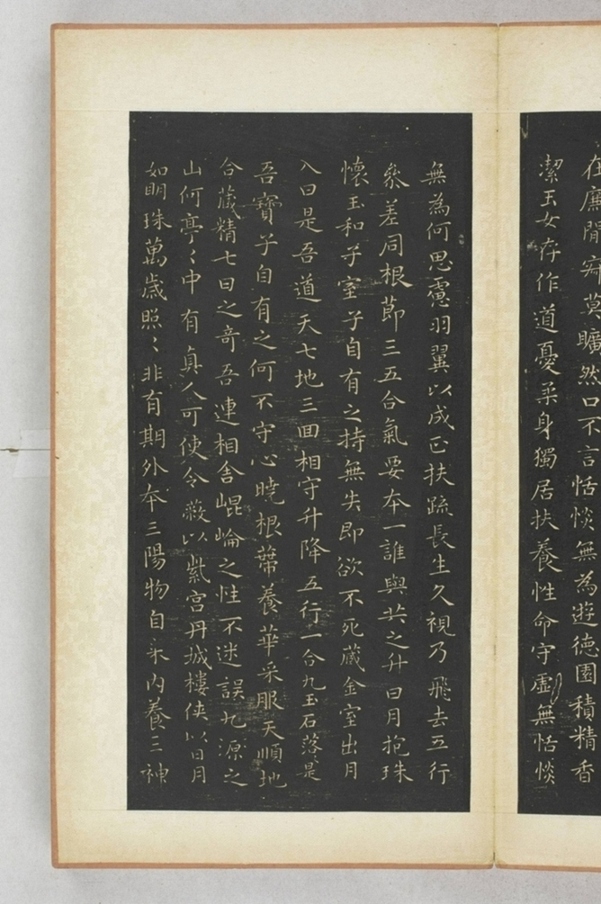 在廉閒寂莫曠然口不言恬惔無為遊德園積精香
潔玉女存作道憂柔身獨居扶養性命守虛無恬惔
無為何思慮羽翼以成正扶踈長生久視乃飛去五行
參差同根節三五合氣要本一誰與共之升日月抱珠
懷玉和子室子自有之持無失即欲不死藏金室出月
入日是吾道天七地三回相守升降五行一合九玉石落是
吾寶子自有之何不守心曉根蔕養華采服天順地
合藏精七日之奇吾連相舍崐崘之性不迷誤九源之
山何亭〻中有真人可使令蔽以紫宮丹城樓俠以日月
如明珠萬歲照〻非有期外本三陽物自來內養三神